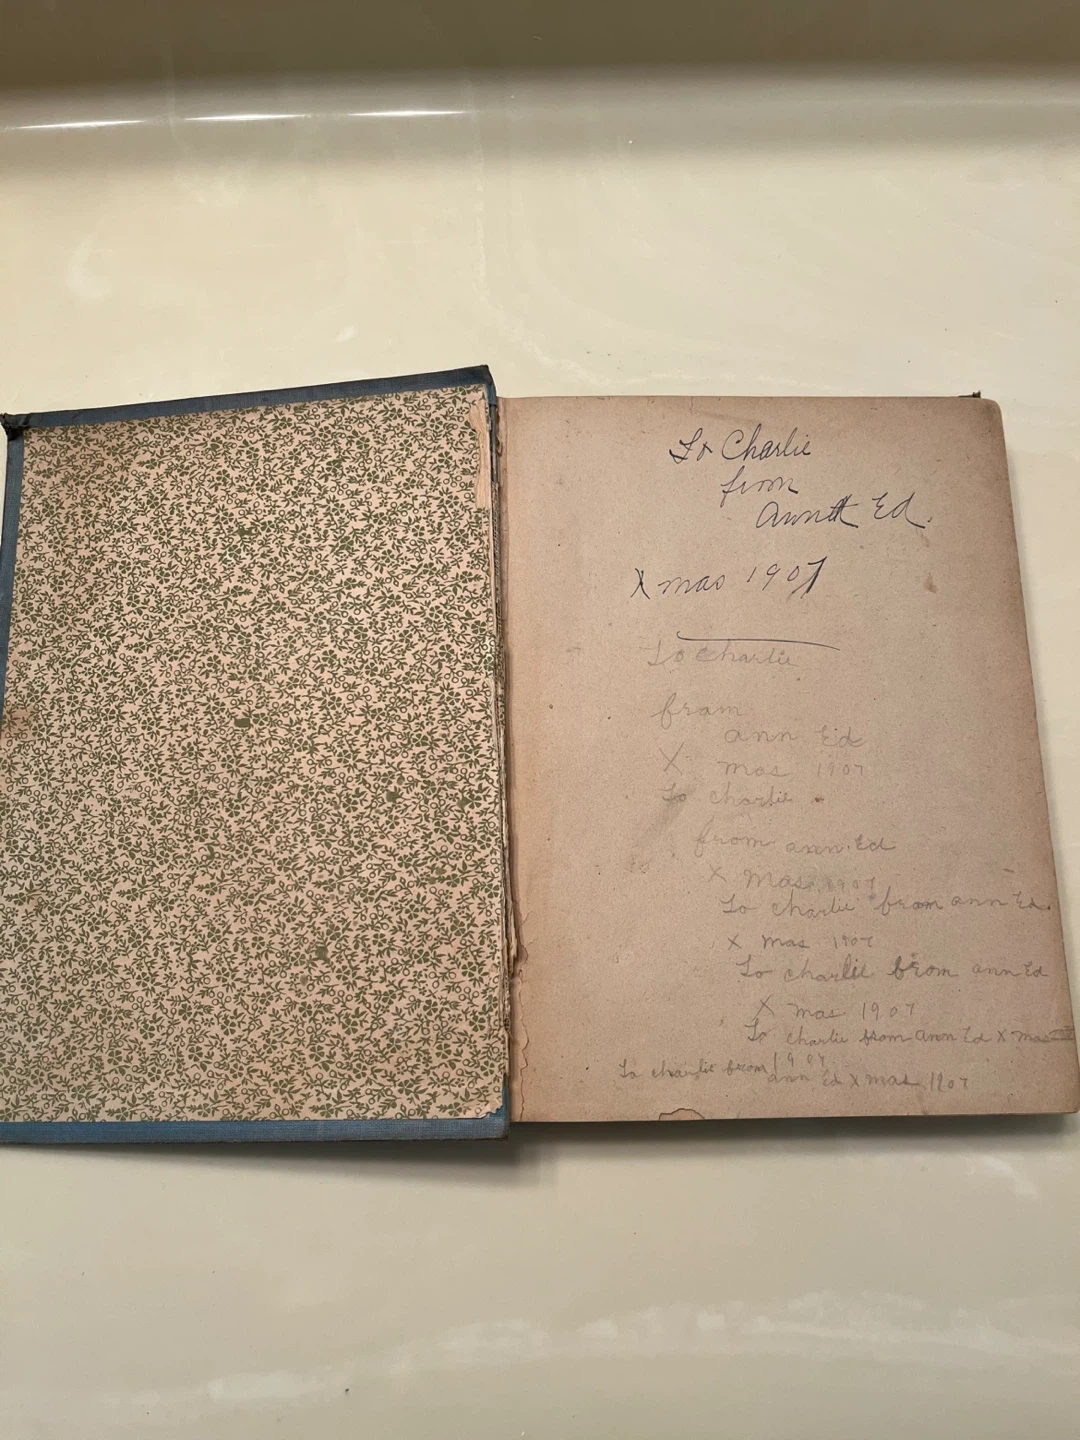 To Charlie
from
Ann & Ed.
X mas 1907
To charlie
from
ann Ed
X mas 1907
To charlie
from ann Ed
X mas 1907
To charlie from ann Ed.
x mas 1907
To charlie from ann Ed
X mas 1907
To charlie from ann Ed X mas
1907
To charlie from
ann Ed x mas 1907